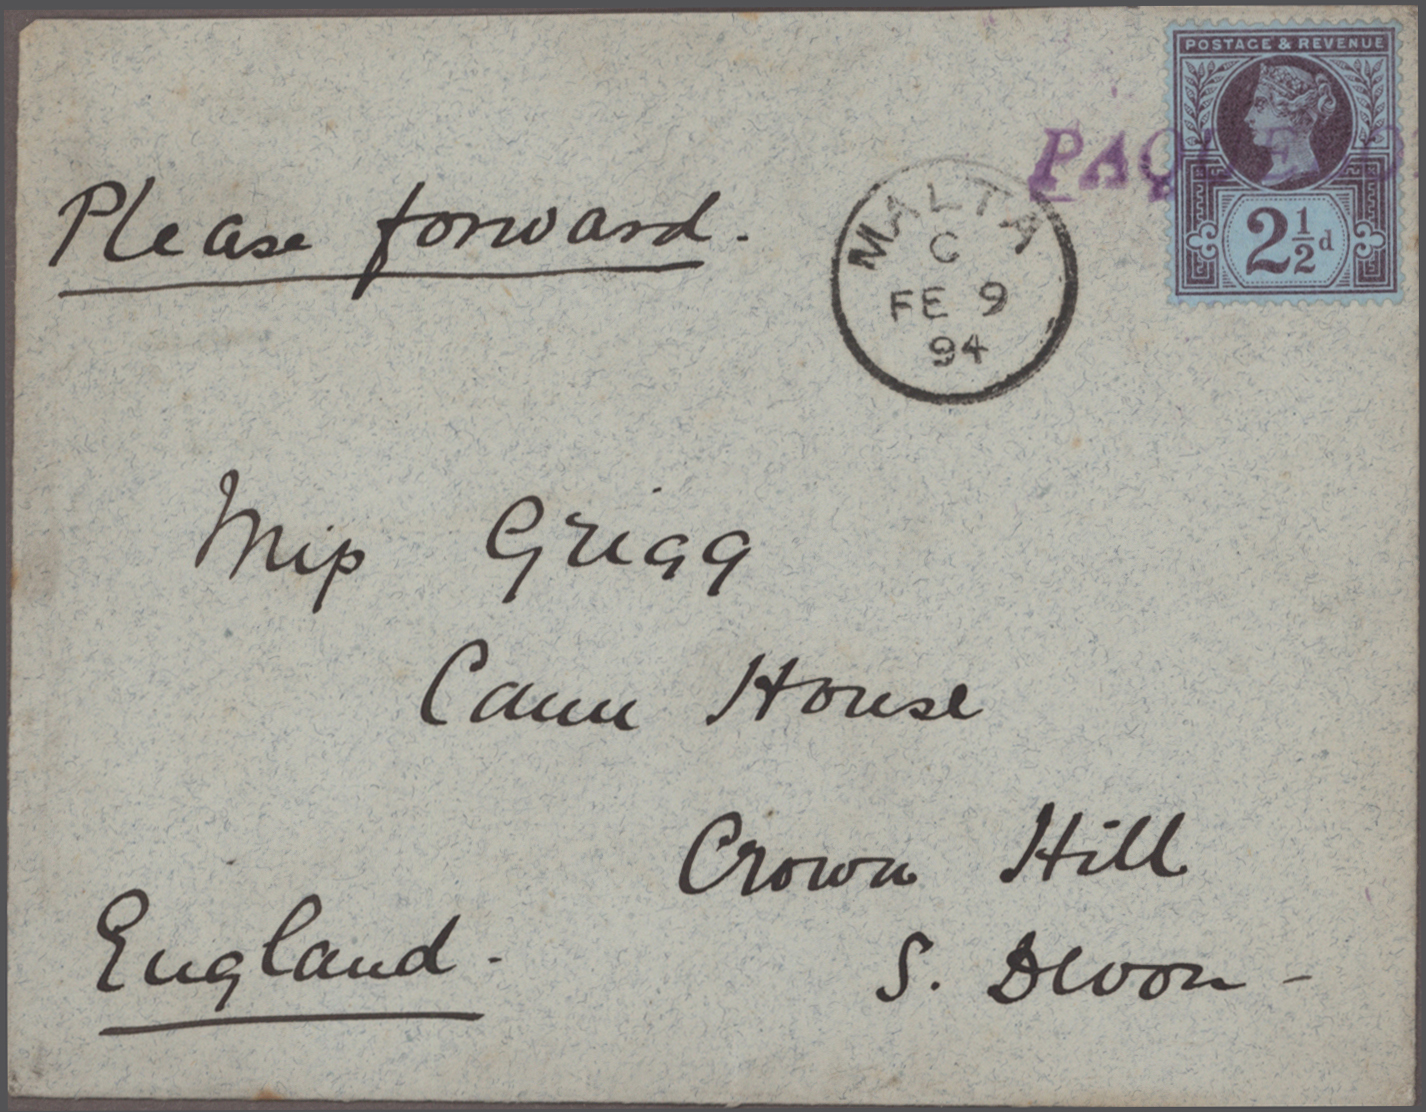 POSTAGE & REVENUE
2½d
PAQUEBO
MALTA
C
FE 9
94
Please forward.
Miss Grigg
Cann House
Crown Hill
S. Devon -
England.